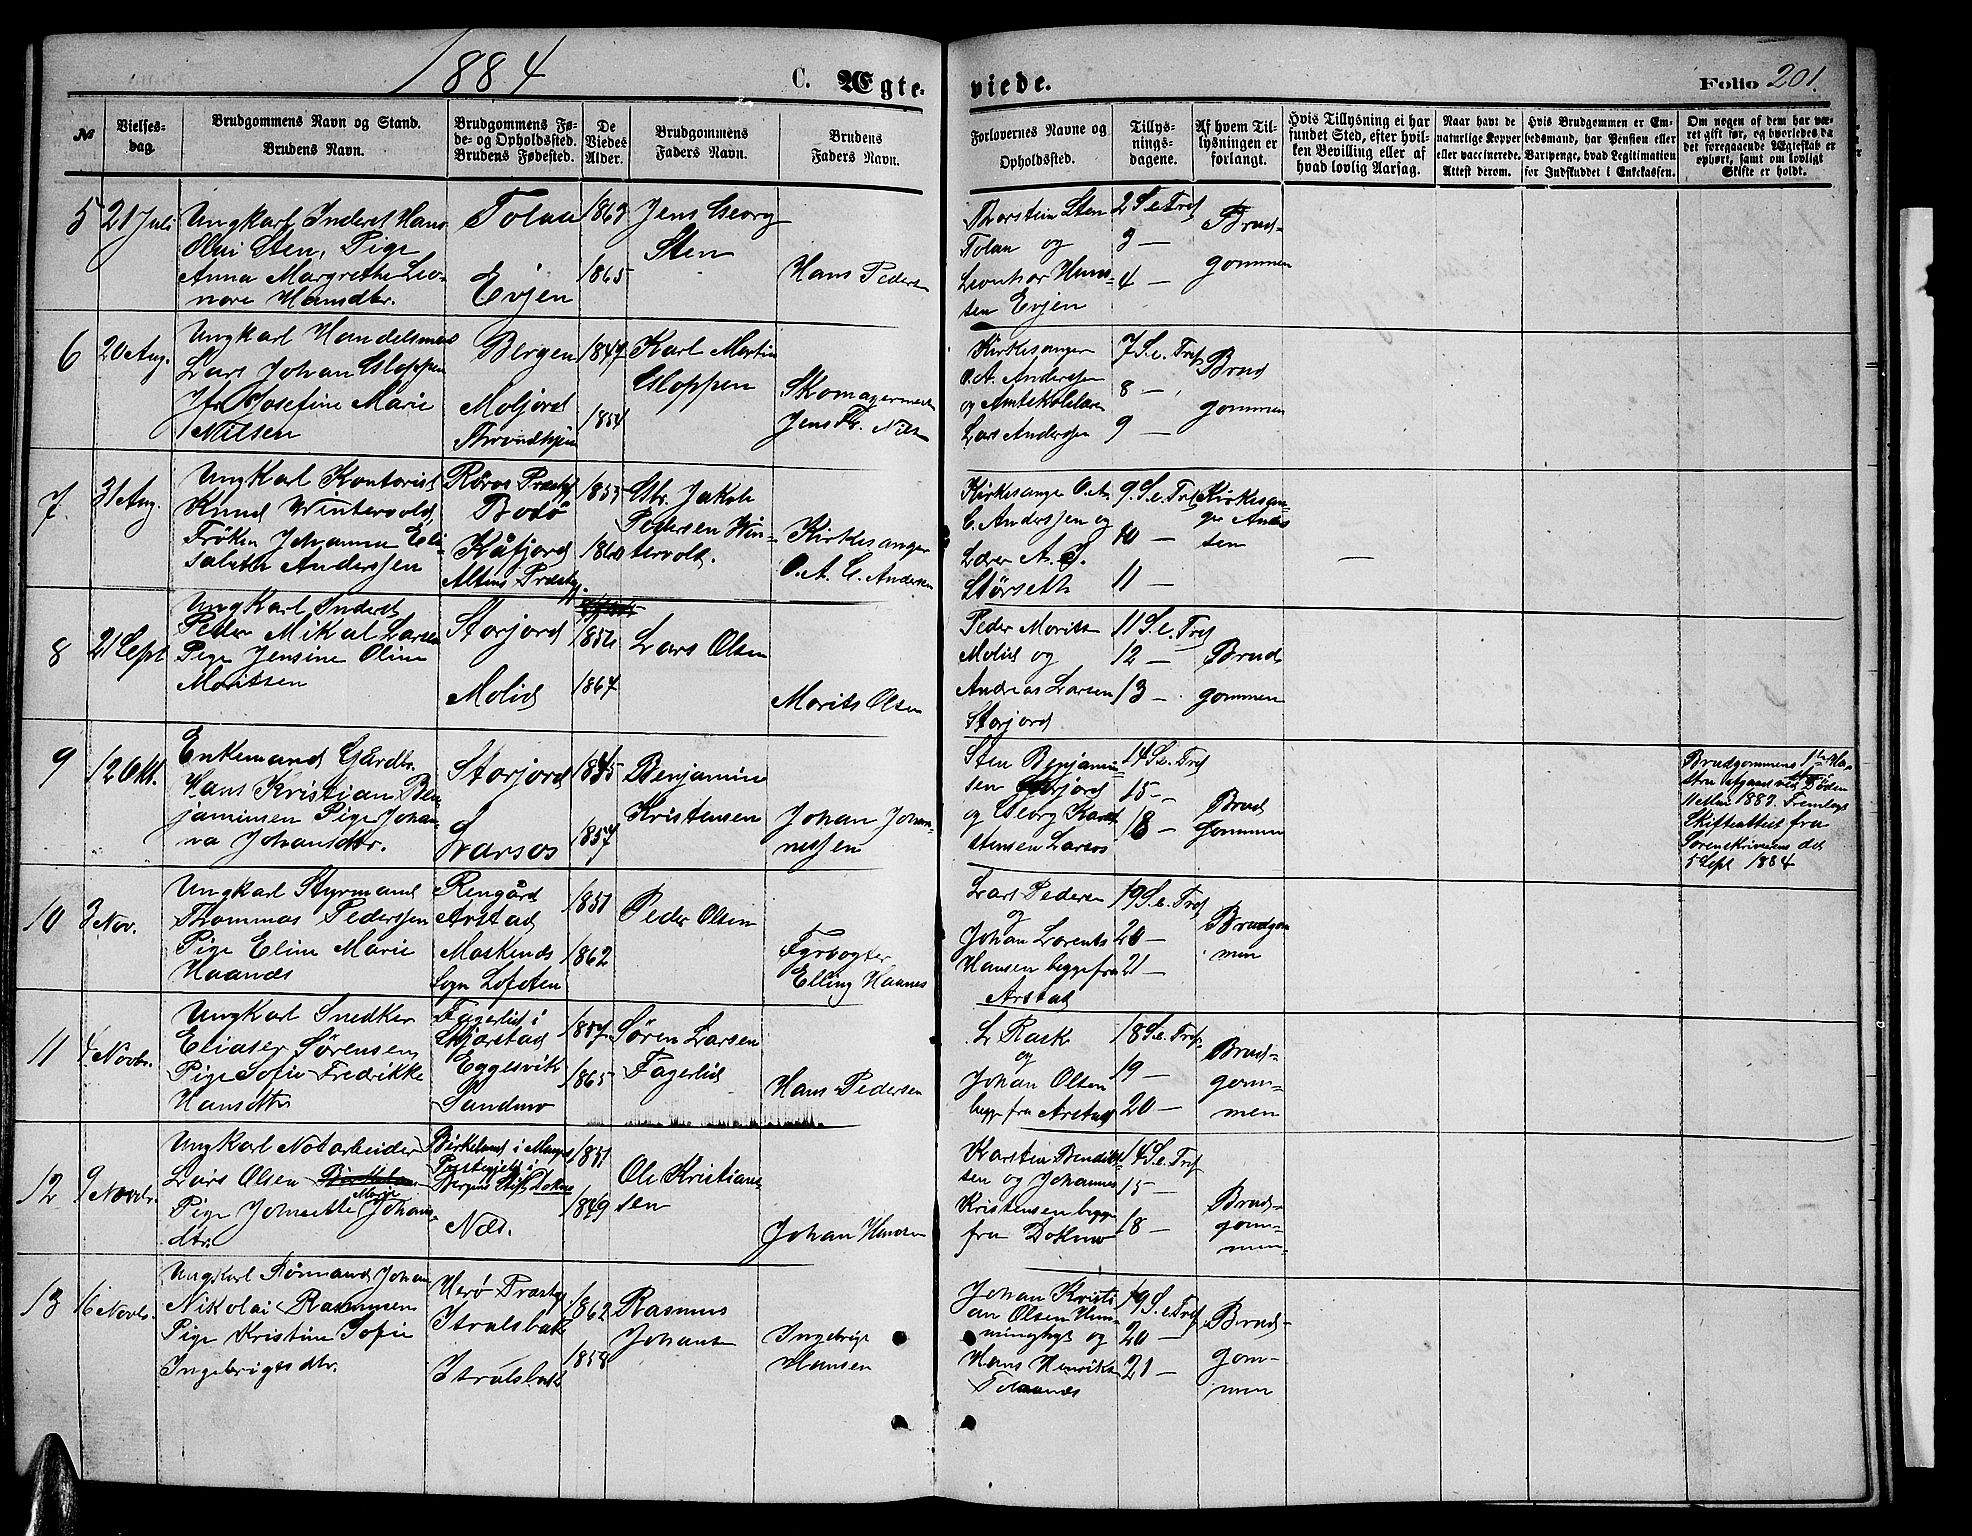 1884
C. Ægte-
viede.
Folio 201.
№
Vielses-
dag.
Brudgommens Navn og Stand.
Brudens Navn.
Brudgommens Fø-
de- og Opholdssted.
Brudens Fødested.
De
Viedes
Alder.
Brudgommens
Faders Navn.
Brudens
Faders Navn.
Forlovernes Navne og
Opholdssted.
Tillys-
nings-
dagene.
Af hvem Til-
lysningen er
forlangt.
Hvis Tillysning ei har
fundet Sted, efter hvil-
ken Bevilling eller af
hvad lovlig Aarsag.
Naar havt de
naturlige Kopper
eller vaccinerede.
Attest derom.
Hvis Brudgommen er Em-
bedsmand, har Pension eller
Vartpenge, hvad Legitimation
for Indskuddet i Enkekassen.
Om nogen af dem har væ-
ret gift før, og hvorledes da
det foregaaende Ægteskab er
ophørt, samt om lovligt
Skifte er holdt.
5
21 Juli
Ungkarl Inderst Hans
Olai Sten, Pige
Anna Margrethe Leo-
nore Hansdtr.
Tolaa
Evjen
1863
1865
Jens Georg
Sten
Hans Peders
Thorstein Sten
Tolaa og
Leonhar Hans-
sen Evjen
2 S. e. Tref
3 —
4 —
Brud-
gommen
6
20 Aug.
Ungkarl Handelsmand
Lars Johan Gloppen
Jfr Josefine Marie
Nilsen
Bergen
Moljord
Throndhjem
1847
1854
Karl Martin
Gloppen
Skomagermest
Jens Fr. Nils
Kirkesanger
O. A. Anderssen
og Amtskolelærer
Lars Anderssen
7 S. e. Tref
8 —
9 —
Brud
gommen
7.
31 Aug.
Ungkarl Kontorist
Knud Wintervold,
Frøken Johanna Eli-
sabeth Anderssen
Røros Præstg
Bodø
Kåfjord
Altens Præstg.
1853
1860
Jakob
Pedersen Win-
tervold.
Kirkesanger
O. A. G. Andersen
Kirkesanger O. A.
G. Anderssen og
Lærer A. J.
Størseth
9. S. e. Tref
10 —
11 —
Kirkesan-
ger Anders
sen
—
8
21 Sept
Ungkarl Inderst
Peder Mikal Larsen
Pige Jensine Oline
Moritsen
Storjord
Molid
1856
1864
Lars Olsen
Morits Olsen
Peder Morits
Molid og
Andreas Larsen
Storjord
11 S. e. Tref
12 —
13 —
Brud
gommen
9
12 Okt.
Enkemand Gårdbr.
Hans Kristian Ben-
jaminsen Pige Johan-
na Johansdtr.
Storjord
Larsos
1845
1857
Benjamine
Kristensen
Johan Johan-
nessen
Sten Benjamin
sen Storjord
og Georg Karst
stensen Larsos
14 S. e. Tref
15 —
18 —
Brud
gommen
Brudgommens 1ste
afgaaet ved Døden
1883. Fremlagt
Skifteattest fra
Sorenskriveren dat
5 Sept 1884
10
3 Nov.
Ungkarl Styrmand
Thommas Pederssen
Pige Eline Marie
Haanes
Rengård
Arstad
Moskenes
Sogn Lofoten
1851
1862
Peder Olsen
Fyrvogter
Elling Haanes
Lars Pedersen
og
Johan Lorents
Hansen begge fra
Arstad
19 S. e. Tref
20 —
21 —
Brudgom
men
11
4 Novbr.
Ungkarl Snedker
Eliaser Sørensen
Pige Sofie Fredrikke
Hansdtr
Fagerlid i
Skjerstad
Eggesvik
Sandmo
1857
1865
Søren Larsen
Fagerlid
Hans Pedersen
L Rask
og
Johan Olsen
begge fra Arstad
18 S. e. Tref
19 —
20 —
Brud-
gom-
men
12
9 Novbr.
Ungkarl Notarbeider
Lars Olsen
Pige Johnette Marie Johans-
dtr.
Birkeland i Manger
Præstegjeld i
Bergens Stift Dokmo
Næs.
1851
1849
Ole Kristian-
sen
Johan Hansen
Karsten Benedikt
sen og Johannes
Kristensen begge
fra Dokmo
14 S. e. Tref
15 —
18 —
Brud-
gom-
men
13
16 Novbr.
Ungkarl Rørmand Johan
Nikolai Rasmusen
Pige Kristine Sofie
Ingebrigtsdtr.
Herø Præstg
Istralsbak
Istralsbak
1862
1858
Rasmus
Johans
Ingebrigt
Hansen
Johan Kristi
an Olsen
og
Hans Henriks
Tolaanes
19 S. e. Tref
20 —
21 —
Brud-
gom-
men